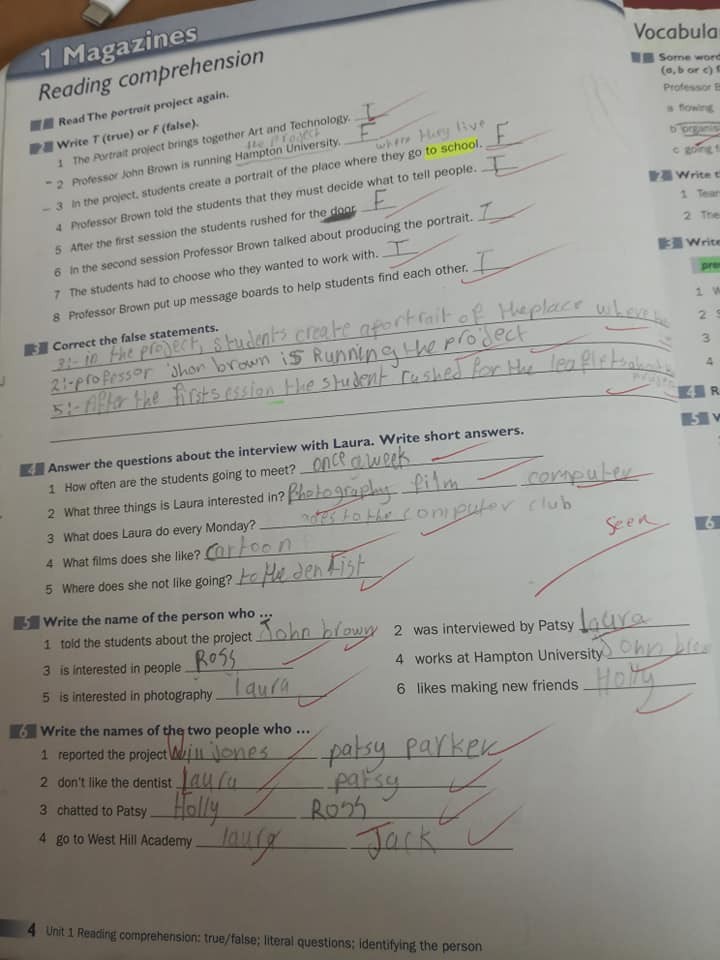 1 Magazines
Reading comprehension
1 Read The portrait project again.
2 Write T (true) or F (false).
1 The Portrait project brings together Art and Technology. T
the project
2 Professor John Brown is running Hampton University. F
where they live
3 In the project, students create a portrait of the place where they go to school. F
4 Professor Brown told the students that they must decide what to tell people. T
5 After the first session the students rushed for the door. F
6 In the second session Professor Brown talked about producing the portrait. T
7 The students had to choose who they wanted to work with. T
8 Professor Brown put up message boards to help students find each other. T
3 Correct the false statements.
3:- in the project, students create a portrait of the place where
2:- professor Jhon brown is Running the project
5:- After the first session the student rushed for the leaflets
4 Answer the questions about the interview with Laura. Write short answers.
1 How often are the students going to meet? once a week
2 What three things is Laura interested in? Photography film computer
3 What does Laura do every Monday? goes to the computer club
4 What films does she like? Cartoon
5 Where does she not like going? to the dentist
Seen
5 Write the name of the person who ...
1 told the students about the project John brown
2 was interviewed by Patsy Laura
3 is interested in people Ross
4 works at Hampton University John
5 is interested in photography laura
6 likes making new friends Holly
6 Write the names of the two people who ...
1 reported the project Will Jones patsy parker
2 don't like the dentist Laura patsy
3 chatted to Patsy Holly Ross
4 go to West Hill Academy laura Jack
4 Unit 1 Reading comprehension: true/false; literal questions; identifying the person
Vocabula
Some word
(a, b or c) f
Professor B
a flowing
b organis
c going t
2 Write t
1 Tear
2 The
3 Write
pre
1 W
2 S
3
4
4 R
5 V
6